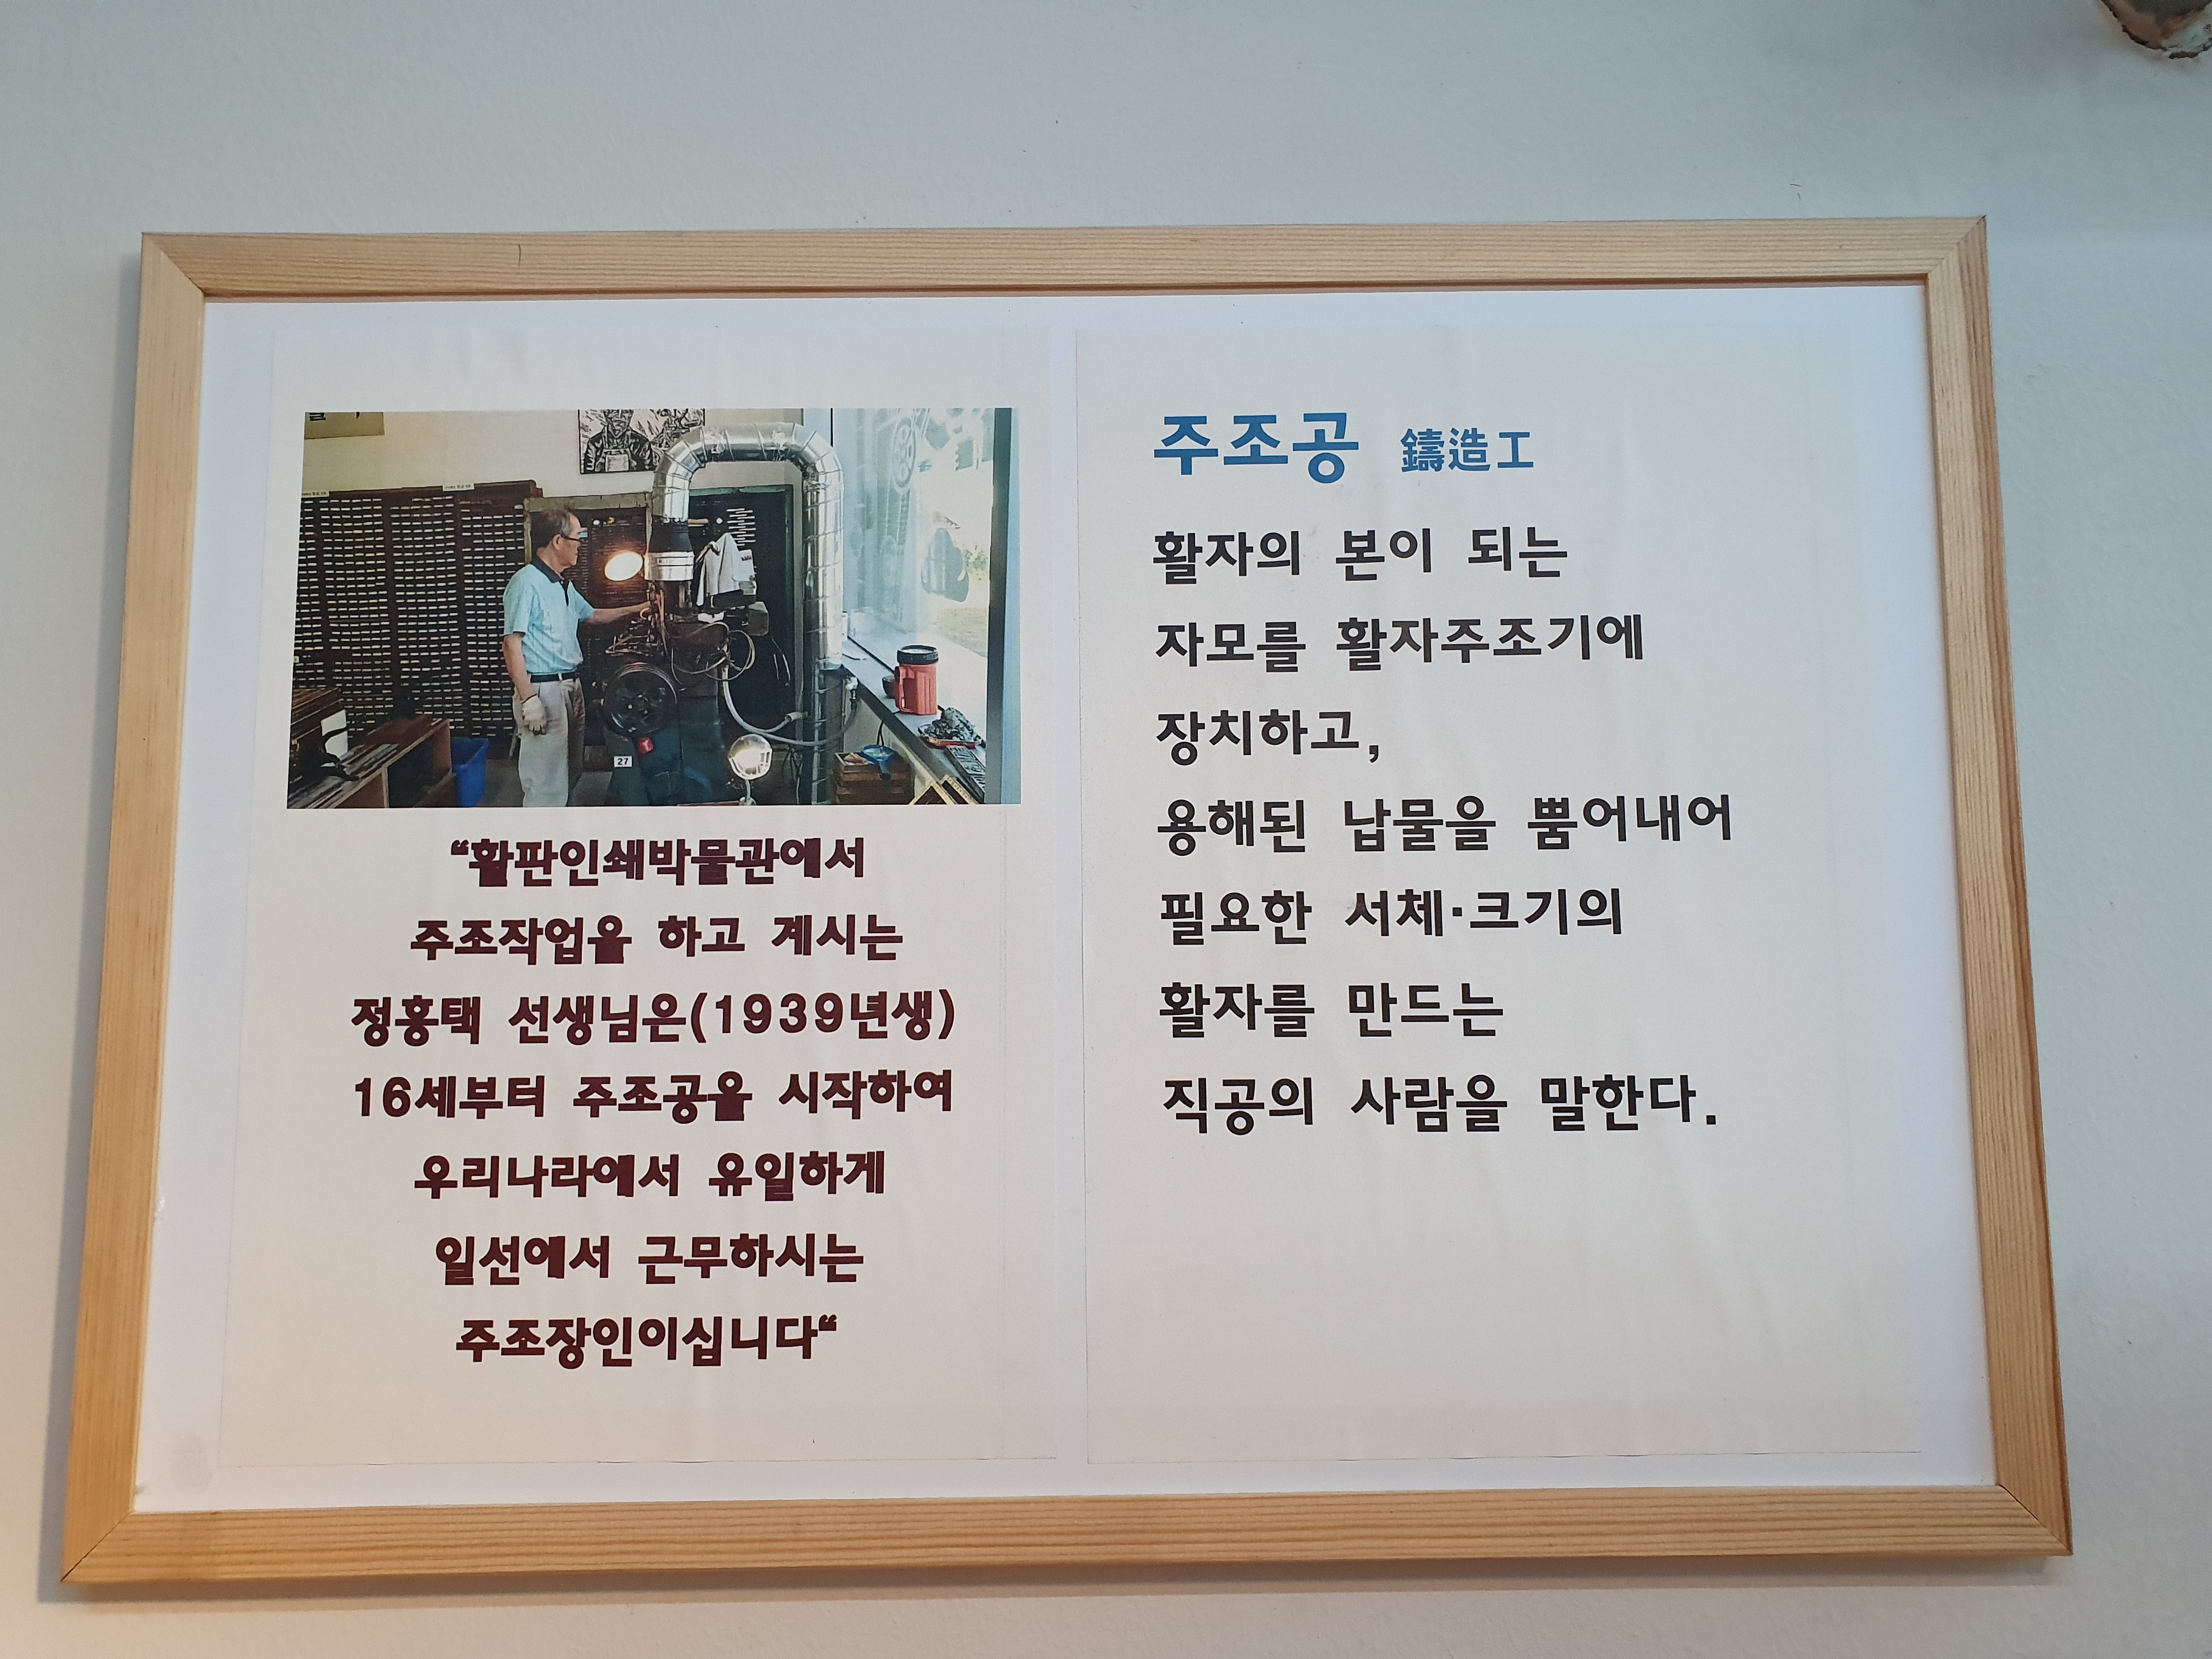 27
“활판인쇄박물관에서
주조작업을 하고 계시는
정흥택 선생님은(1939년생)
16세부터 주조공을 시작하여
우리나라에서 유일하게
일선에서 근무하시는
주조장인이십니다“
주조공 鑄造工
활자의 본이 되는
자모를 활자주조기에
장치하고,
용해된 납물을 뿜어내어
필요한 서체·크기의
활자를 만드는
직공의 사람을 말한다.